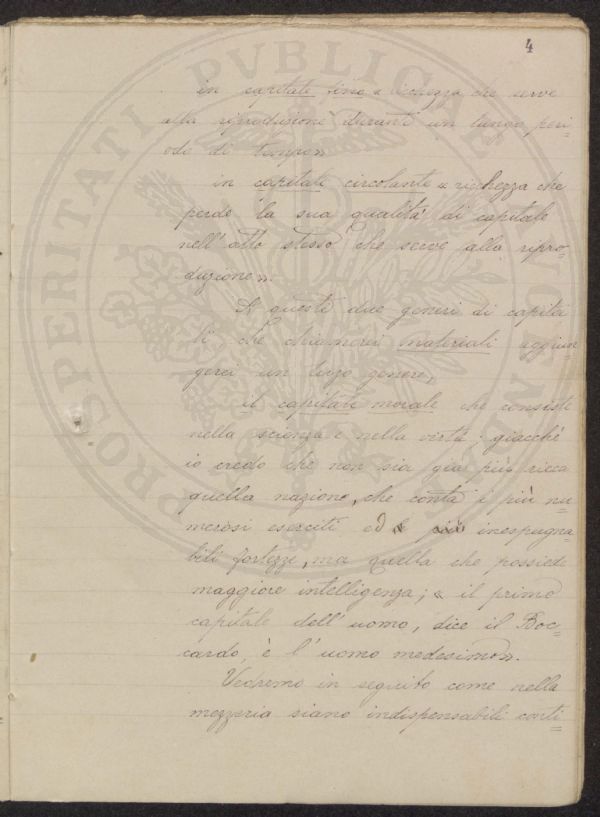 4
in capitale fisso « ricchezza che serve
alla riproduzione durante un lungo peri-
odo di tempo»
in capitale circolante « richezza che
perde la sua qualità di capitale
nell'atto stesso che serve alla ripro-
duzione».
A questi due generi di capita
li, che chiamerei materiali aggiun
gerei un terzo genere,
il capitale morale che consiste
nella scienza e nella virtù: giacchè
io credo che non sia già più ricca
quella nazione, che conta i più nu-
merosi eserciti ed più inespugna-
bili fortezze, ma quella che possiede
maggiore intelligenza; « il primo
capitale dell'uomo, dice il Boc-
cardo, è l'uomo medesimo».
Vedremo in seguito come nella
mezzeria siano indispensabili conti-
PROSPERITATI PVBLICAE